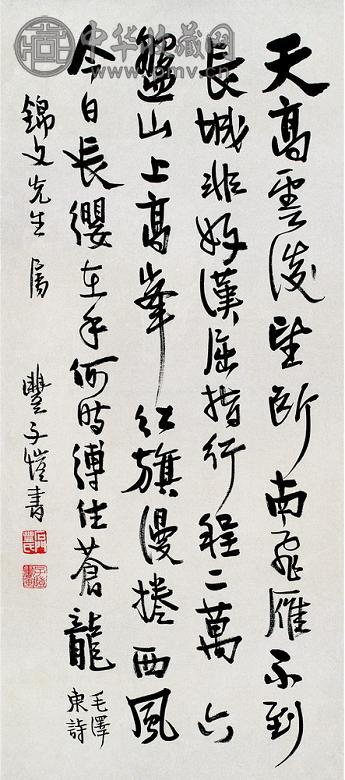 中华收藏网
天高雲淡望断南飛雁不到
長城非好漢屈指行程二萬六
盤山上高峰紅旗漫捲西風
今日長纓在手何時縛住蒼龍
毛澤
東詩
錦文先生属
豐子愷書
石門豐氏